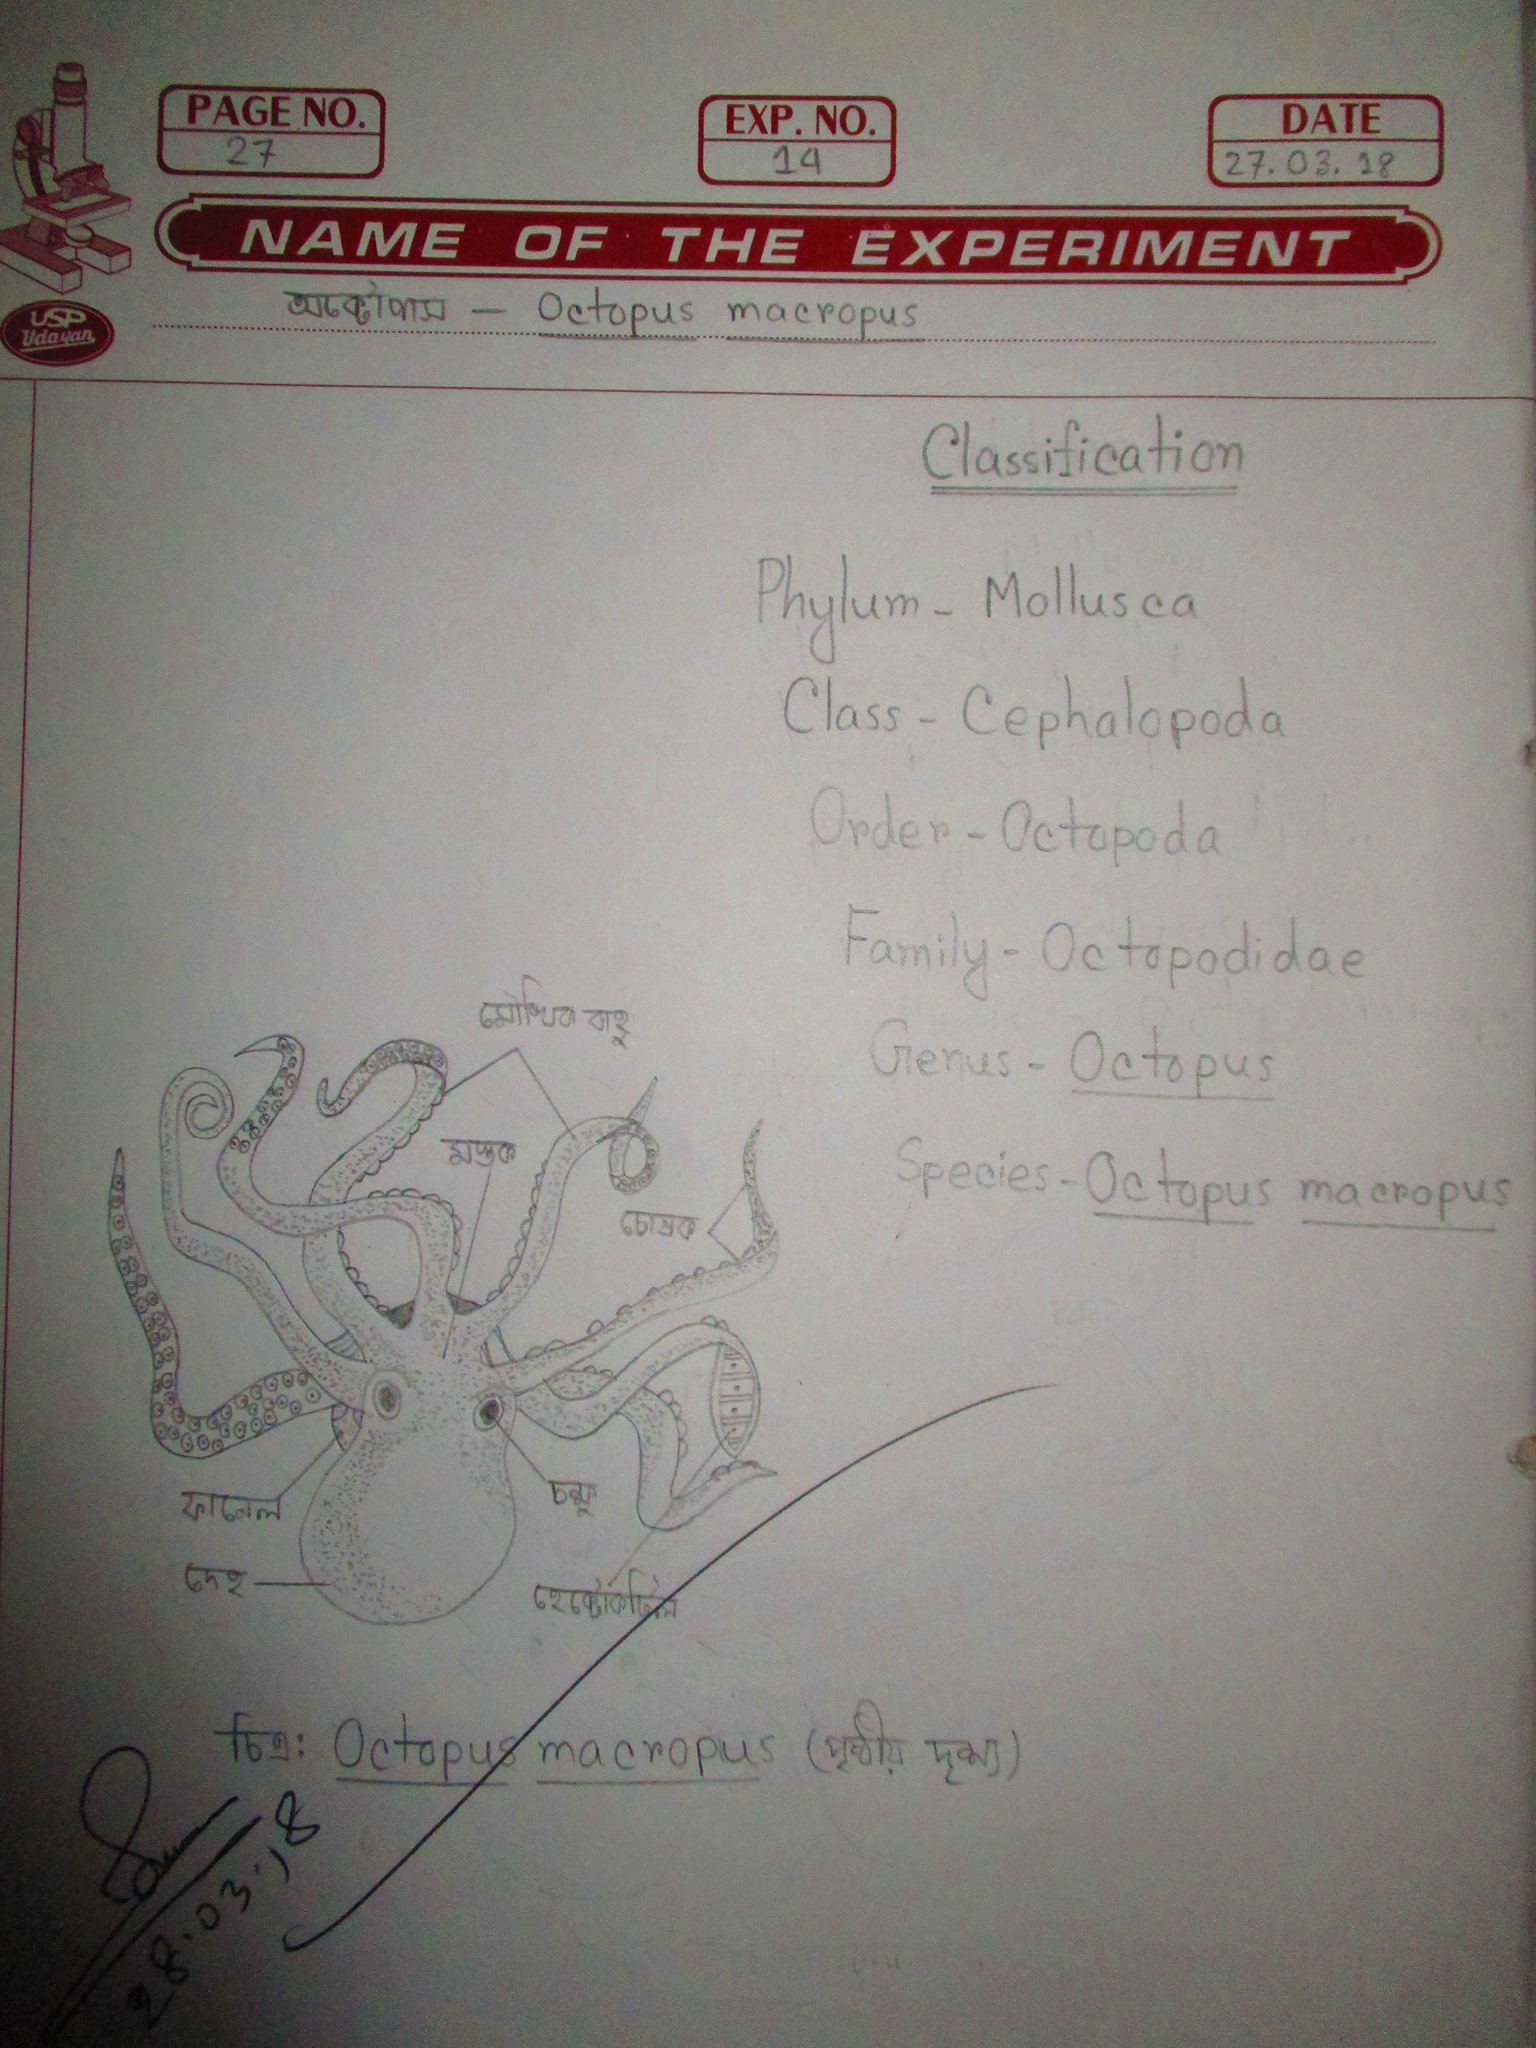 PAGE NO.
27
EXP. NO.
14
DATE
27.03.18
NAME OF THE EXPERIMENT
USP
Udayan
অক্টোপাস — Octopus macropus
Classification
Phylum - Mollusca
Class - Cephalopoda
Order - Octopoda
Family - Octopodidae
Genus - Octopus
Species - Octopus macropus
মৌখিক বাহু
মস্তক
চোষক
ফানেল
চক্ষু
দেহ
হেক্টোকটিল
চিত্র: Octopus macropus (পৃষ্ঠীয় দৃশ্য)
28.03.18